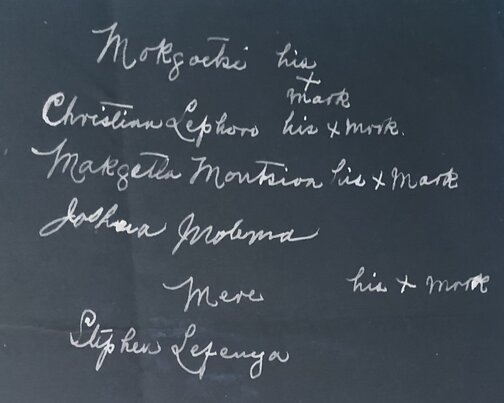 Mokgoetsi his
x
mark
Christian Lephoro his x mark.
Makgetla Montsioa his x Mark
Joshua Molema
Mere his x mark
Stephen Lefenya